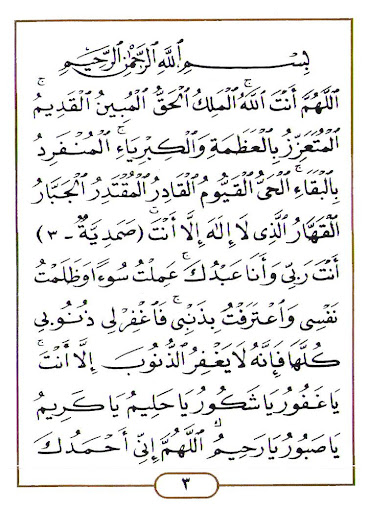 بِسْمِ ٱللَّهِ ٱلرَّحْمٰنِ ٱلرَّحِيْمِ
اَللّٰهُمَّ أَنْتَ ٱللّٰهُ ٱلْمَلِكُ ٱلْحَقُّ ٱلْمُبِيْنُ ٱلْقَدِيْمُ
ٱلْمُتَعَزِّزُ بِالْعَظَمَةِ وَٱلْكِبْرِيَاءِ ٱلْمُنْفَرِدُ
بِالْبَقَاءِ ٱلْحَيُّ ٱلْقَيُّوْمُ ٱلْقَادِرُ ٱلْمُقْتَدِرُ ٱلْجَبَّارُ
ٱلْقَهَّارُ ٱلَّذِى لَا إِلٰهَ إِلَّا أَنْتَ ( صَمَدِيَّةٌ - ٣ )
أَنْتَ رَبِّى وَأَنَا عَبْدُكَ عَمِلْتُ سُوْءًا وَظَلَمْتُ
نَفْسِى وَٱعْتَرَفْتُ بِذَنْبِى فَاغْفِرْلِى ذُنُوْبِى
كُلَّهَا فَإِنَّهُ لَا يَغْفِرُ ٱلذُّنُوْبَ إِلَّا أَنْتَ
يَا غَفُوْرُ يَا شَكُوْرُ يَا حَلِيْمُ يَا كَرِيْمُ
يَا صَبُوْرُ يَا رَحِيْمُ ٱللّٰهُمَّ إِنِّى أَحْمَدُكَ
٣